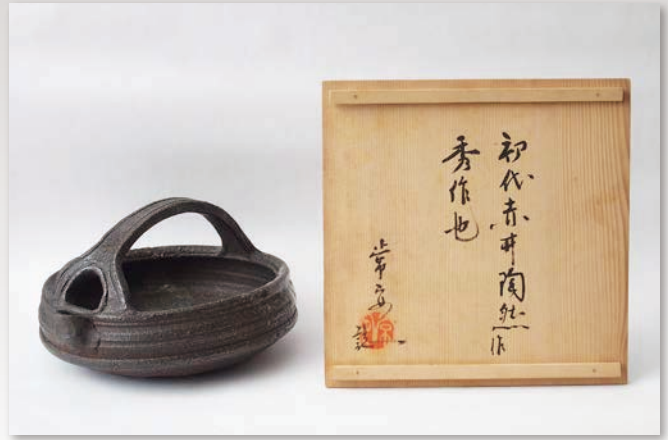 初代赤井陶然作
秀作也
常安